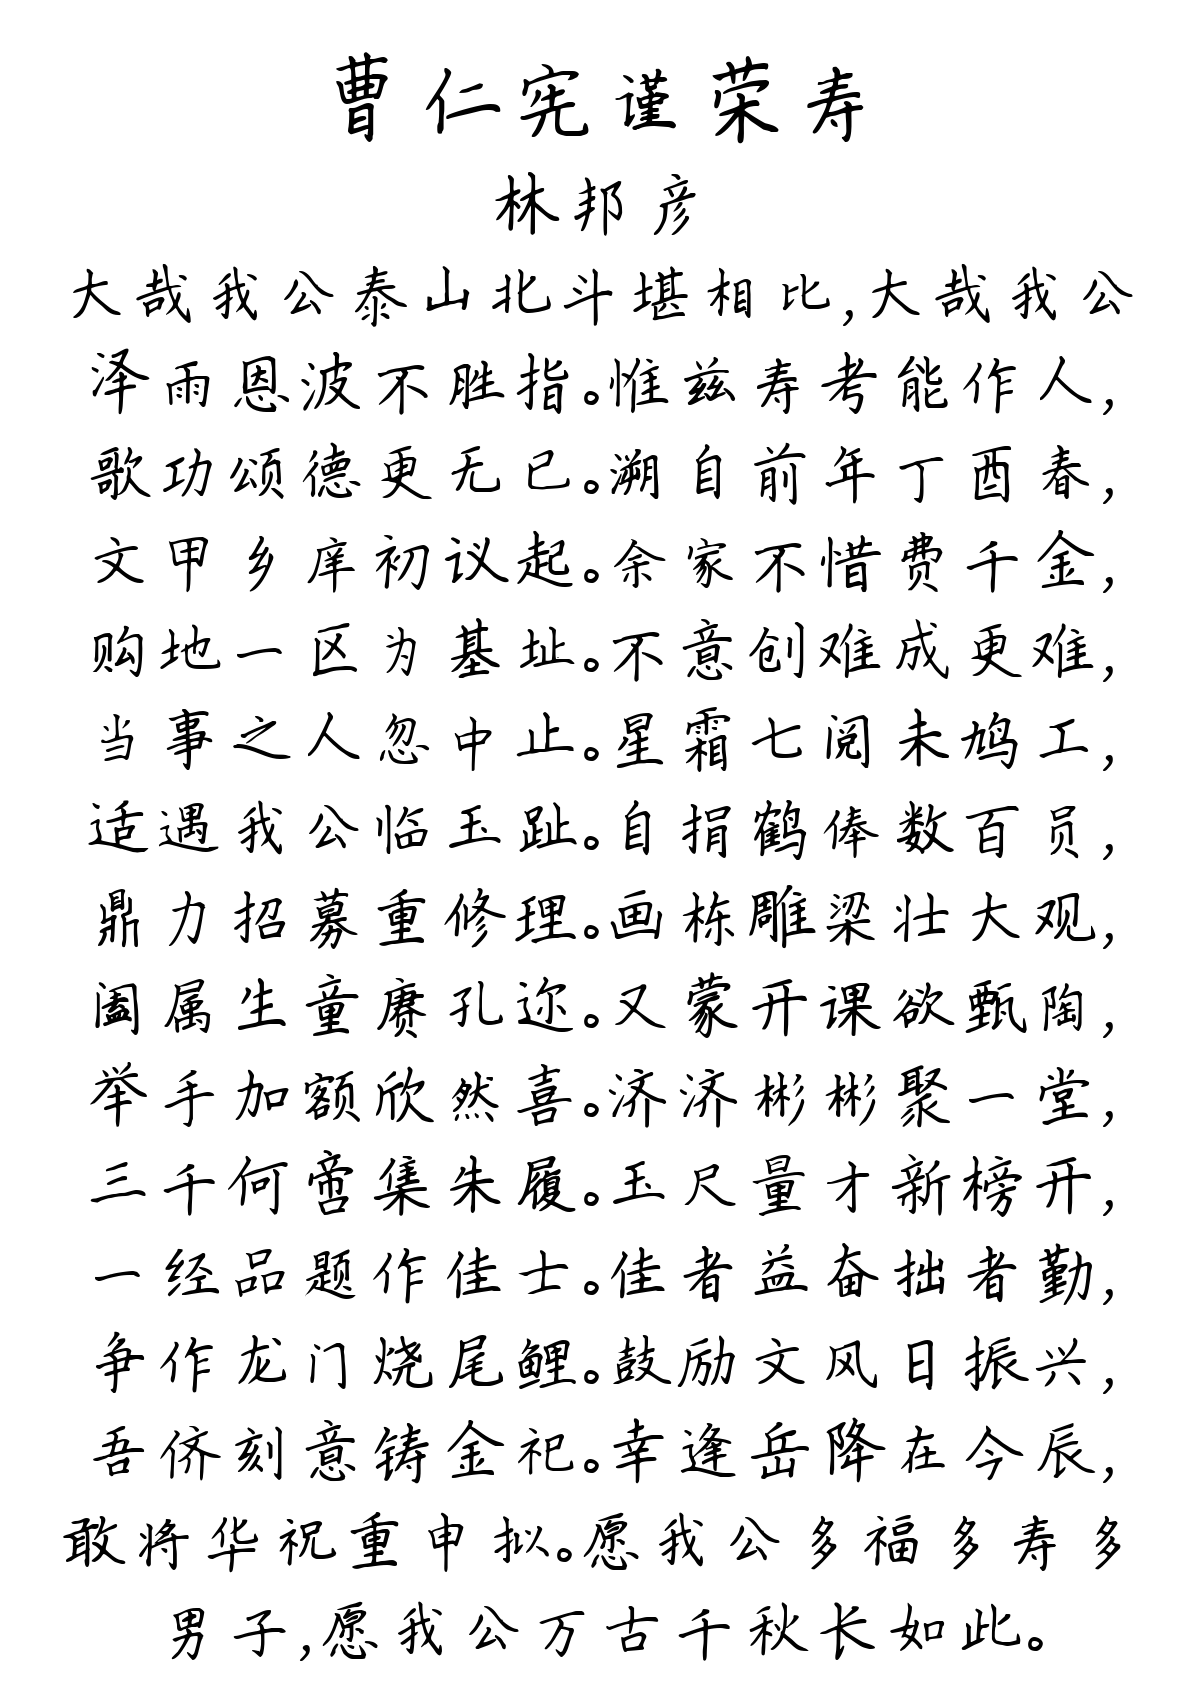 曹仁宪谨荣寿
林邦彦
大哉我公泰山北斗堪相比,大哉我公
泽雨恩波不胜指。惟兹寿考能作人,
歌功颂德更无已。溯自前年丁酉春,
文甲乡庠初议起。余家不惜费千金,
购地一区为基址。不意创难成更难,
当事之人忽中止。星霜七阅未鸠工,
适遇我公临玉趾。自捐鹤俸数百员,
鼎力招募重修理。画栋雕梁壮大观,
阖属生童赓孔迩。又蒙开课欲甄陶,
举手加额欣然喜。济济彬彬聚一堂,
三千何啻集朱履。玉尺量才新榜开,
一经品题作佳士。佳者益奋拙者勤,
争作龙门烧尾鲤。鼓励文风日振兴,
吾侪刻意铸金祀。幸逢岳降在今辰,
敢将华祝重申拟。愿我公多福多寿多
男子,愿我公万古千秋长如此。